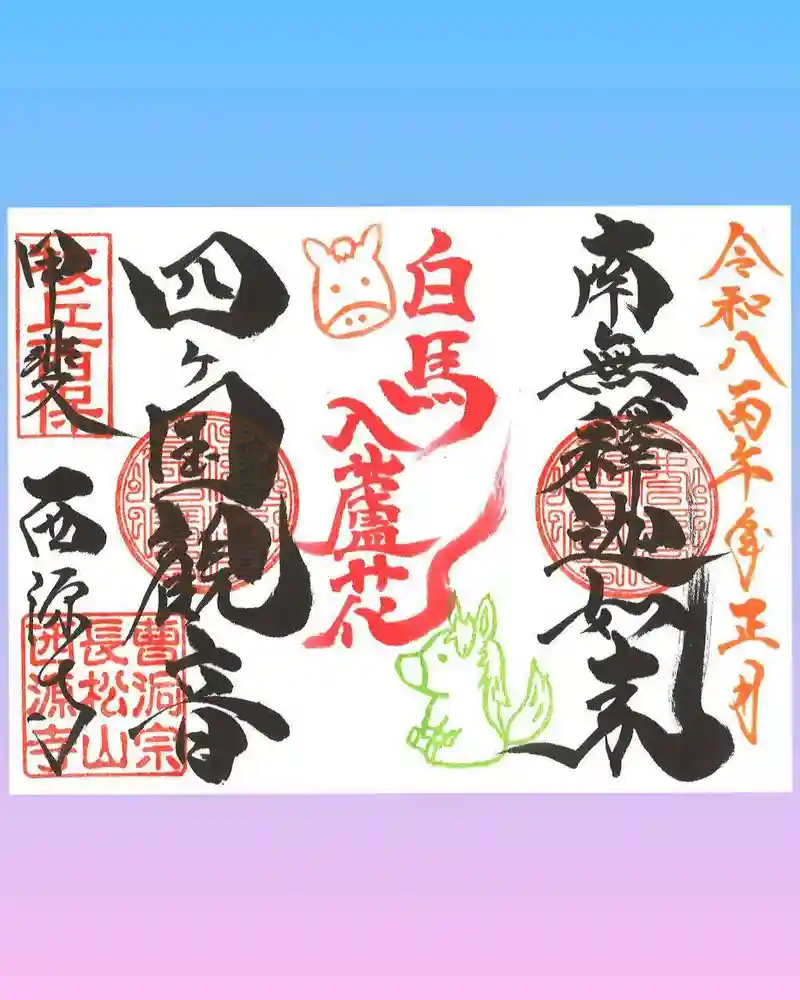 令和八丙午年正月
南無釋迦如来
白馬
入蘆花
四ヶ国観音
甲斐
西源寺
曹洞宗
長松山
西源寺